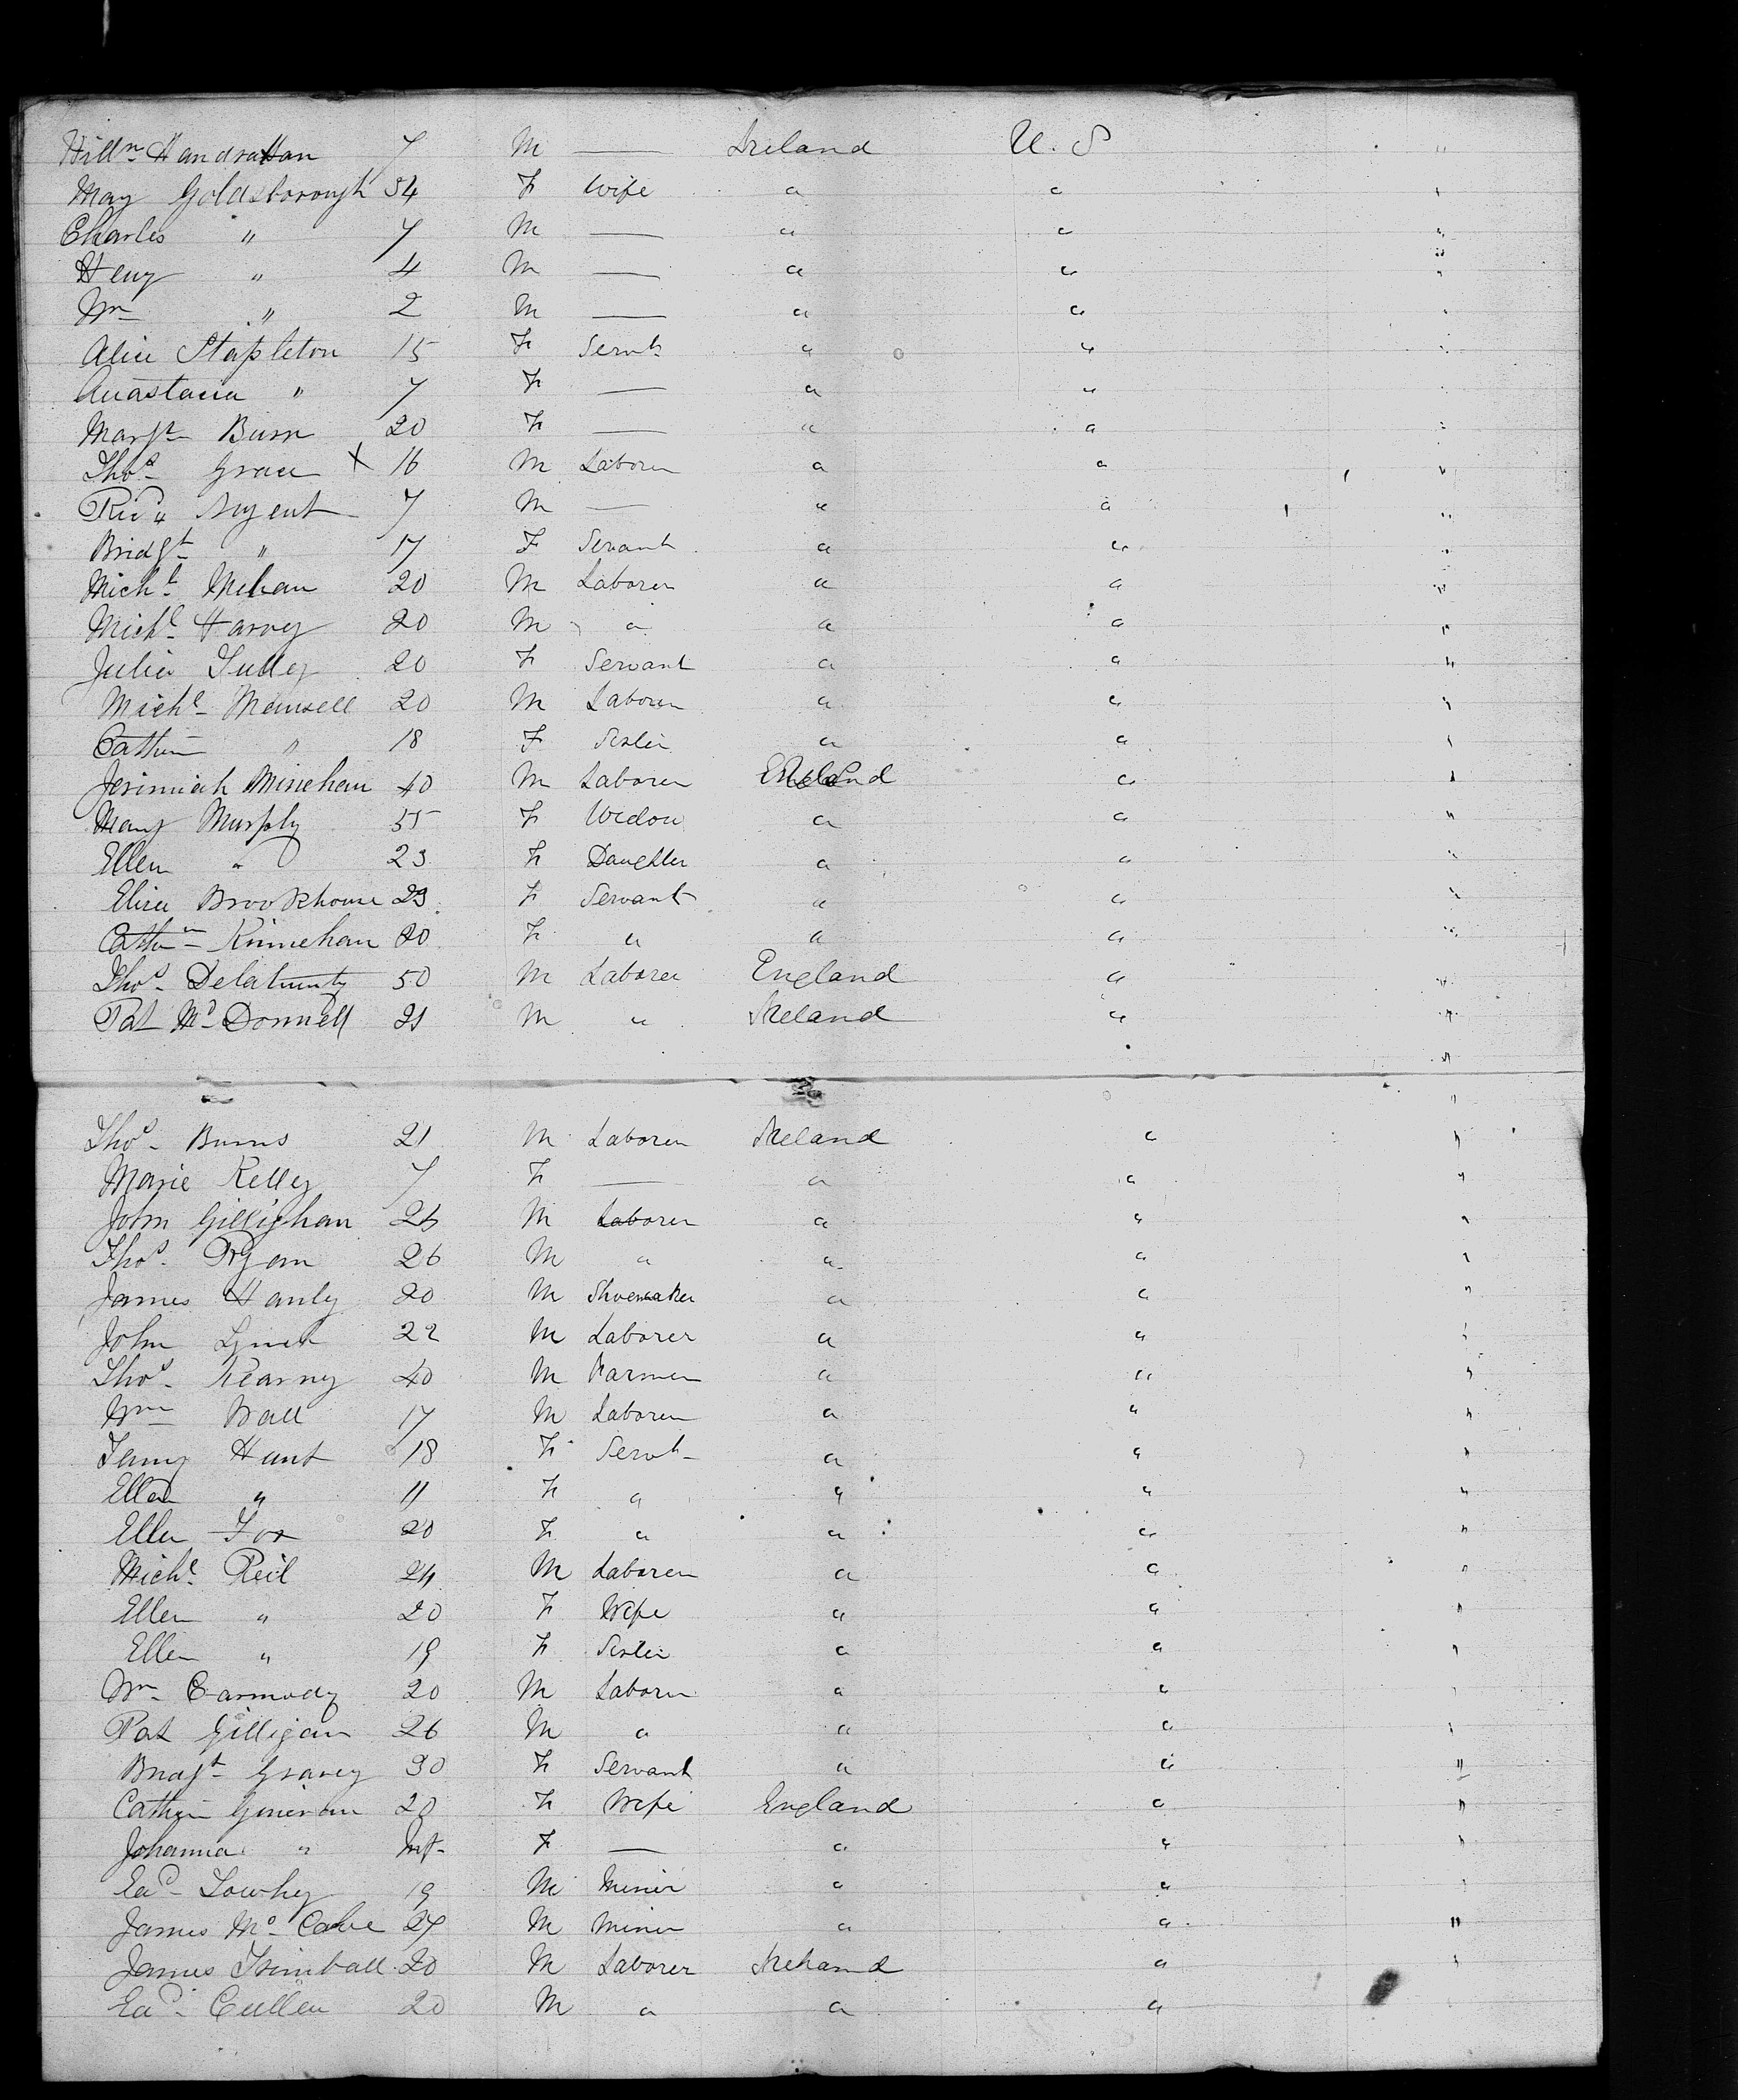 Willm Handrahan 7 M — Ireland U. S "
May Goldsborough 34 F Wife " " "
Charles " 7 M — " " "
Heny " 4 M — " " "
Wm " 2 M — " " "
Alice Stapleton 15 F Servt " " "
Anastacia " 7 F — " " "
Margt Burn 20 F — " " "
Thos Grace X 16 M Laborer " " "
Ricd Nugent 7 M — " " "
Bridgt " 17 F Servant " " "
Michl Mehan 20 M Laborer " " "
Michl Harvey 20 M " " " "
Julia Tully 20 F Servant " " "
Michl Mansell 20 M Laborer " " "
Cathrin " 18 F Sister " " "
Jerimiah Minehan 40 M Laborer " "
Mary Murphy 55 F Widow " " "
Ellen " 23 F Daughter " " "
Eliza Brookhouse 23 F Servant " " "
Cathn Kinnehan 20 F " " " "
Thos Delahunty 50 M Laborer England " "
Pat Mc Donnell 21 M " Ireland " "
Thos Burns 21 M Laborer Ireland " "
Marie Kelley 7 F — " " "
John Gillighan 25 M Laborer " " "
Thos Ryan 26 M " " " "
James Hanly 20 M Shoemaker " " "
John Lynch 22 M Laborer " " "
Thos Kearney 40 M Farmer " " "
Wm Wall 17 M Laborer " " "
Fanny Hunt 18 F Servt " " "
Ellen " 11 F " " " "
Ellen Fox 20 F " " " "
Michl Reil 24 M Laborer " " "
Ellen " 20 F Wife " " "
Ellen " 19 F Sister " " "
Wm Carmody 20 M Laborer " " "
Pat Gilligan 26 M " " " "
Bridgt Gravey 30 F Servant " " "
Cathrin 20 F Wife England " "
Johanna " Inft F — " " "
Ed 19 M Miner " " "
James Mc Cabe 27 M Miner " " "
James Trimball 20 M Laborer Ireland " "
Ed Cullen 20 M " " "